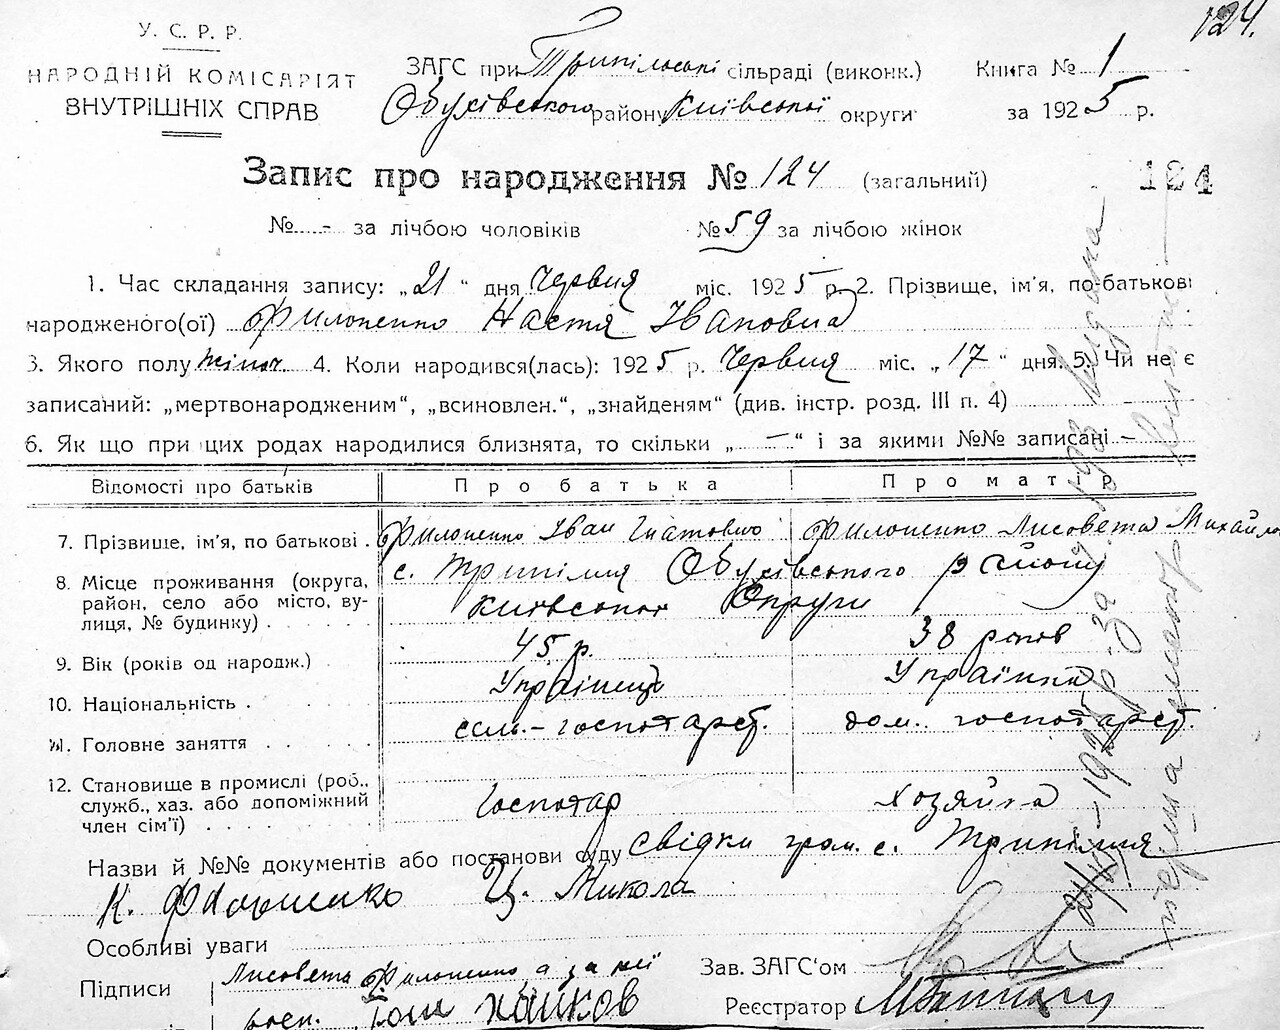 124.
У. С. Р. Р.
НАРОДНІЙ КОМІСАРІЯТ
ВНУТРІШНІХ СПРАВ
ЗАГС при Трипільські сільраді (виконк.)
Обухівського району Київської округи
Книга № 1
за 1925 р.
Запис про народження № 124 (загальний)
124
№ - за лічбою чоловіків № 59 за лічбою жінок
1. Час складання запису: „21" дня Червня міс. 1925 р. 2. Прізвище, ім'я, по-батькові
народженого(ої) Филоненко Настя Івановна
3. Якого полу жіноч. 4. Коли народився(лась): 1925 р. Червня міс. „17" дня. 5. Чи не є
записаний: „мертвонародженим", „всиновлен.", „знайденям" (див. інстр. розд. III п. 4)
6. Як що при цих родах народилися близнята, то скільки „—" і за якими №№ записані -
Відомості про батьків Про батька Про матір
7. Прізвище, ім'я, по батькові. Филоненко Іван Гнатович Филоненко Лисовета Михайло
8. Місце проживання (округа, район, село або місто, вулиця, № будинку) с. Трипілля Обухівського району
Київської Округи
9. Вік (років од народж.) 45 р. 38 років
10. Національність Українець Українка
11. Головне заняття сель.-госпотарст. дом. госпотарст.
12. Становище в промислі (роб.,
служб., хаз. або допоміжний
член сім'ї) Госпотар хозяйка
Назви й №№ документів або постанови суду свідки гром. с. Трипілля
К. Филоненко Микола
Особливі уваги
Підписи Лисовета Филоненко а за неї
Зав. ЗАГС'ом
Реєстратор